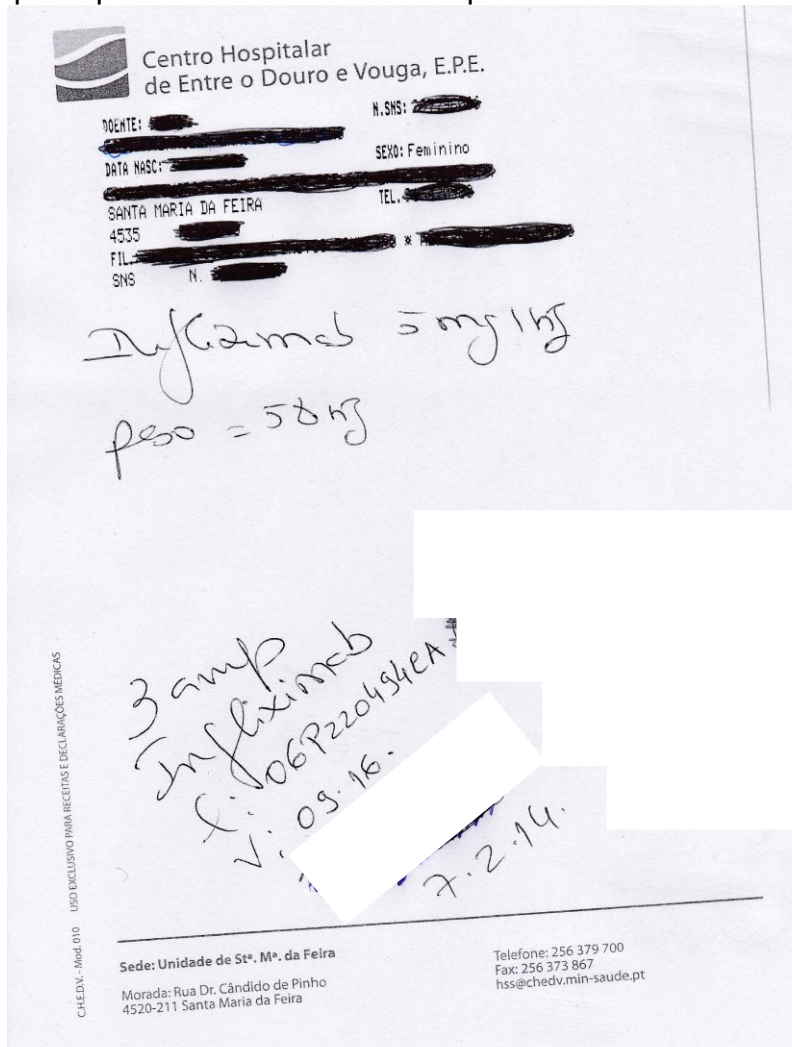 Centro Hospitalar
de Entre o Douro e Vouga, E.P.E.
DOENTE:
N.SNS:
DATA NASC:
SEXO: Feminino
SANTA MARIA DA FEIRA
TEL.
4535
FIL.
*
SNS N.
Infliximab 5mg/kg
peso = 58 kg
3 amp
Infliximab
L: 06P220494CA
V: 09.16.
7.2.14.
C.H.E.D.V. - Mod. 010 USO EXCLUSIVO PARA RECEITAS E DECLARAÇÕES MÉDICAS
Sede: Unidade de Stª. Mª. da Feira
Morada: Rua Dr. Cândido de Pinho
4520-211 Santa Maria da Feira
Telefone: 256 379 700
Fax: 256 373 867
hss@chedv.min-saude.pt